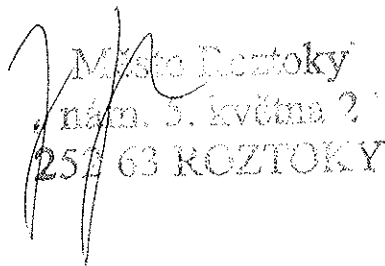 Město Roztoky
nám. 5. května 2
252 63 ROZTOKY